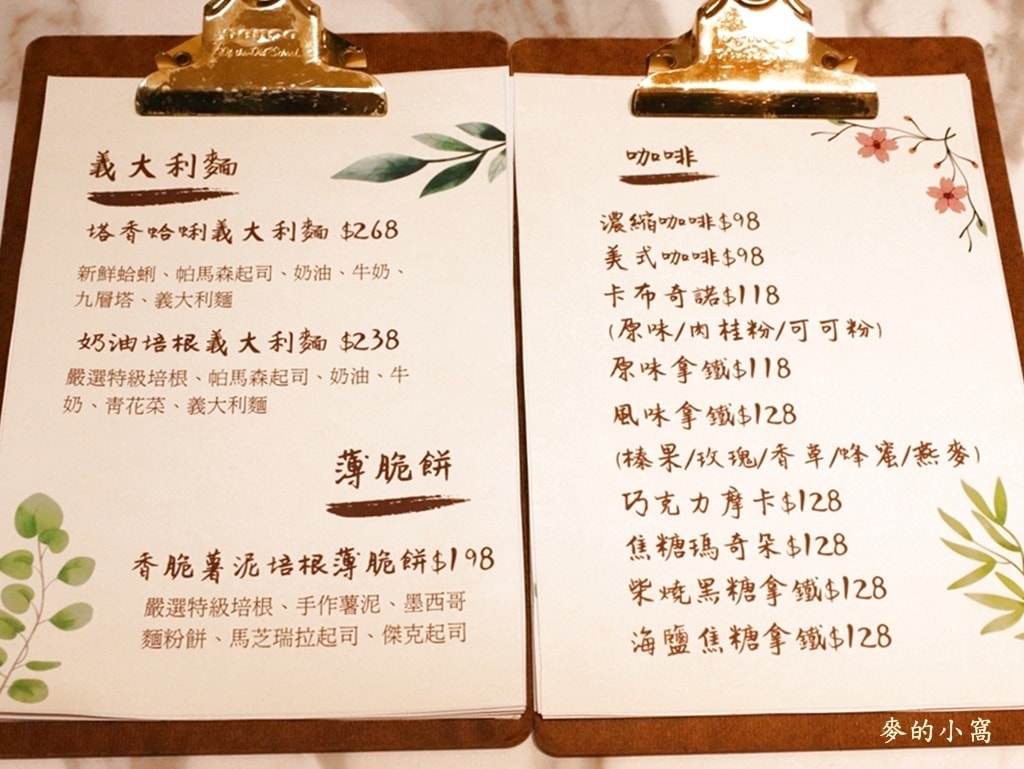 義大利麵
塔香蛤蜊義大利麵 $268
新鮮蛤蜊、帕馬森起司、奶油、牛奶、
九層塔、義大利麵
奶油培根義大利麵 $238
嚴選特級培根、帕馬森起司、奶油、牛
奶、青花菜、義大利麵
薄脆餅
香脆薯泥培根薄脆餅$198
嚴選特級培根、手作薯泥、墨西哥
麵粉餅、馬芝瑞拉起司、傑克起司
咖啡
濃縮咖啡$98
美式咖啡$98
卡布奇諾$118
(原味/肉桂粉/可可粉)
原味拿鐵$118
風味拿鐵$128
(榛果/玫瑰/香草/蜂蜜/燕麥)
巧克力摩卡$128
焦糖瑪奇朵$128
柴燒黑糖拿鐵$128
海鹽焦糖拿鐵$128
麥的小窩